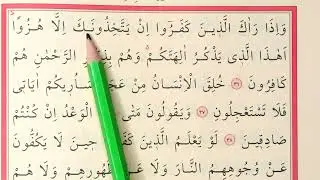 وَاِذَا رَاٰكَ الَّذٖينَ كَفَرُٓوا اِنْ يَتَّخِذُونَكَ اِلَّا هُزُواًؕ
اَهٰذَا الَّذٖي يَذْكُرُ اٰلِهَتَكُمْۚ وَهُمْ بِذِكْرِ الرَّحْمٰنِ هُمْ
كَافِرُونَ ﴿٣٦﴾ خُلِقَ الْاِنْسَانُ مِنْ عَجَلٍؕ سَاُرٖيكُمْ اٰيَاتٖي
فَلَا تَسْتَعْجِلُونِ ﴿٣٧﴾ وَيَقُولُونَ مَتٰى هٰذَا الْوَعْدُ اِنْ كُنْتُمْ
صَادِقٖينَ ﴿٣٨﴾ لَوْ يَعْلَمُ الَّذٖينَ كَفَرُوا حٖينَ لَا يَكُفُّونَ
عَنْ وُجُوهِهِمُ النَّارَ وَلَا عَنْ ظُهُورِهِمْ وَلَا هُمْ